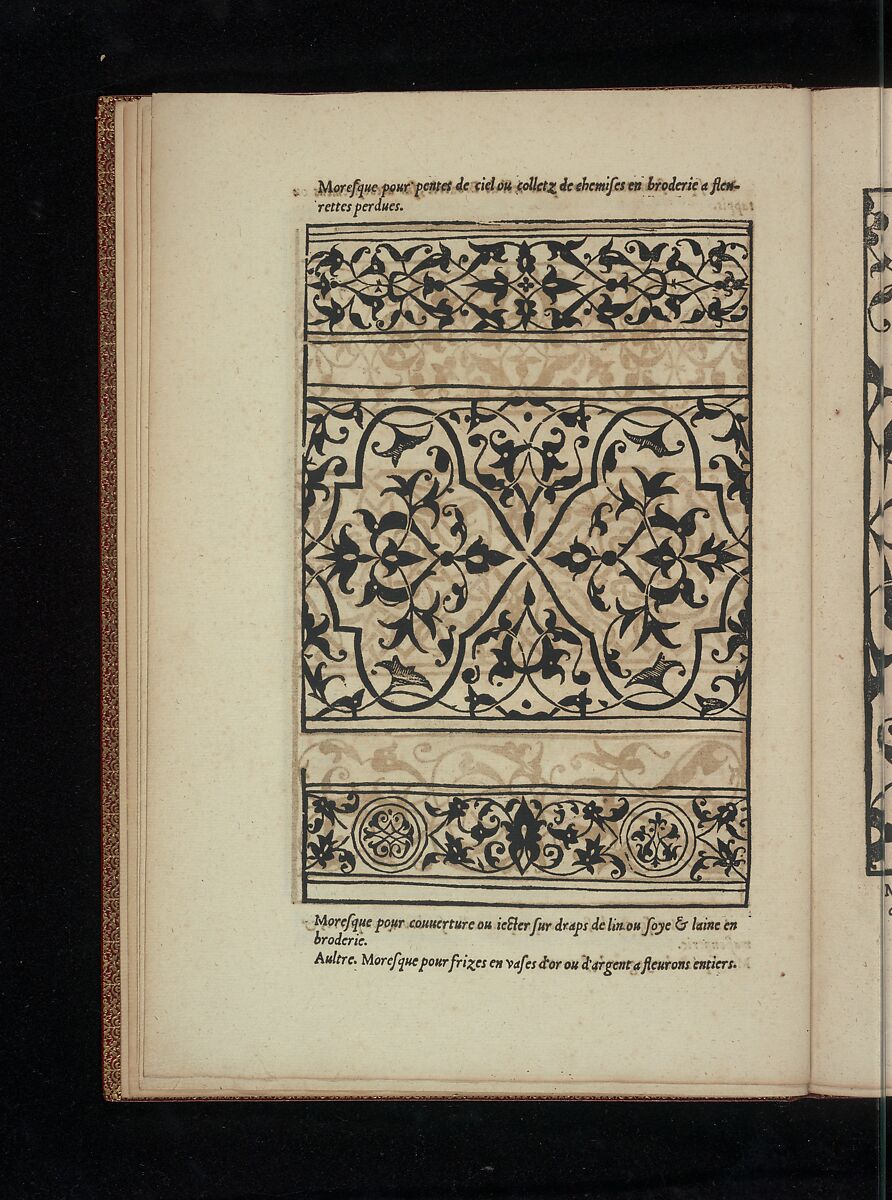 Moreſque pour pentes de ciel ou colletz de chemiſes en broderie a fleu-
rettes perdues.
Moreſque pour couuerture ou iecter ſur draps de lin ou ſoye & laine en
broderie.
Aultre. Moreſque pour frizes en vaſes d'or ou d'argent a fleurons entiers.